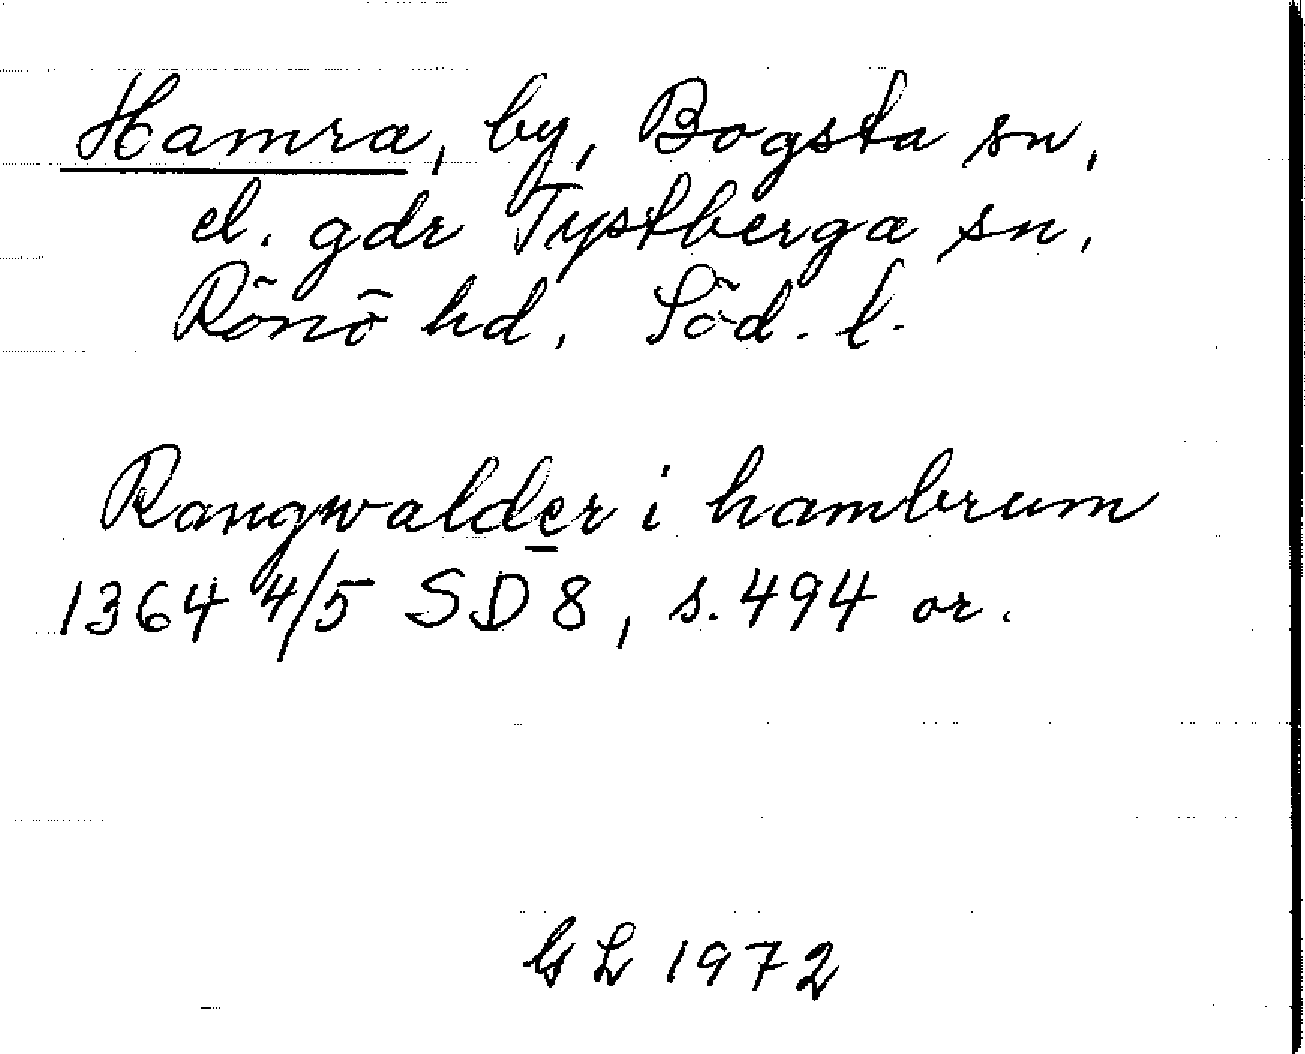 Hamra, by, Bogsta sn,
el. gdr Tystberga sn,
Rönö hd, Söd. l.
Rangwalder i hambrum
1364 4/5 SD 8, s. 494 or.
GL 1972